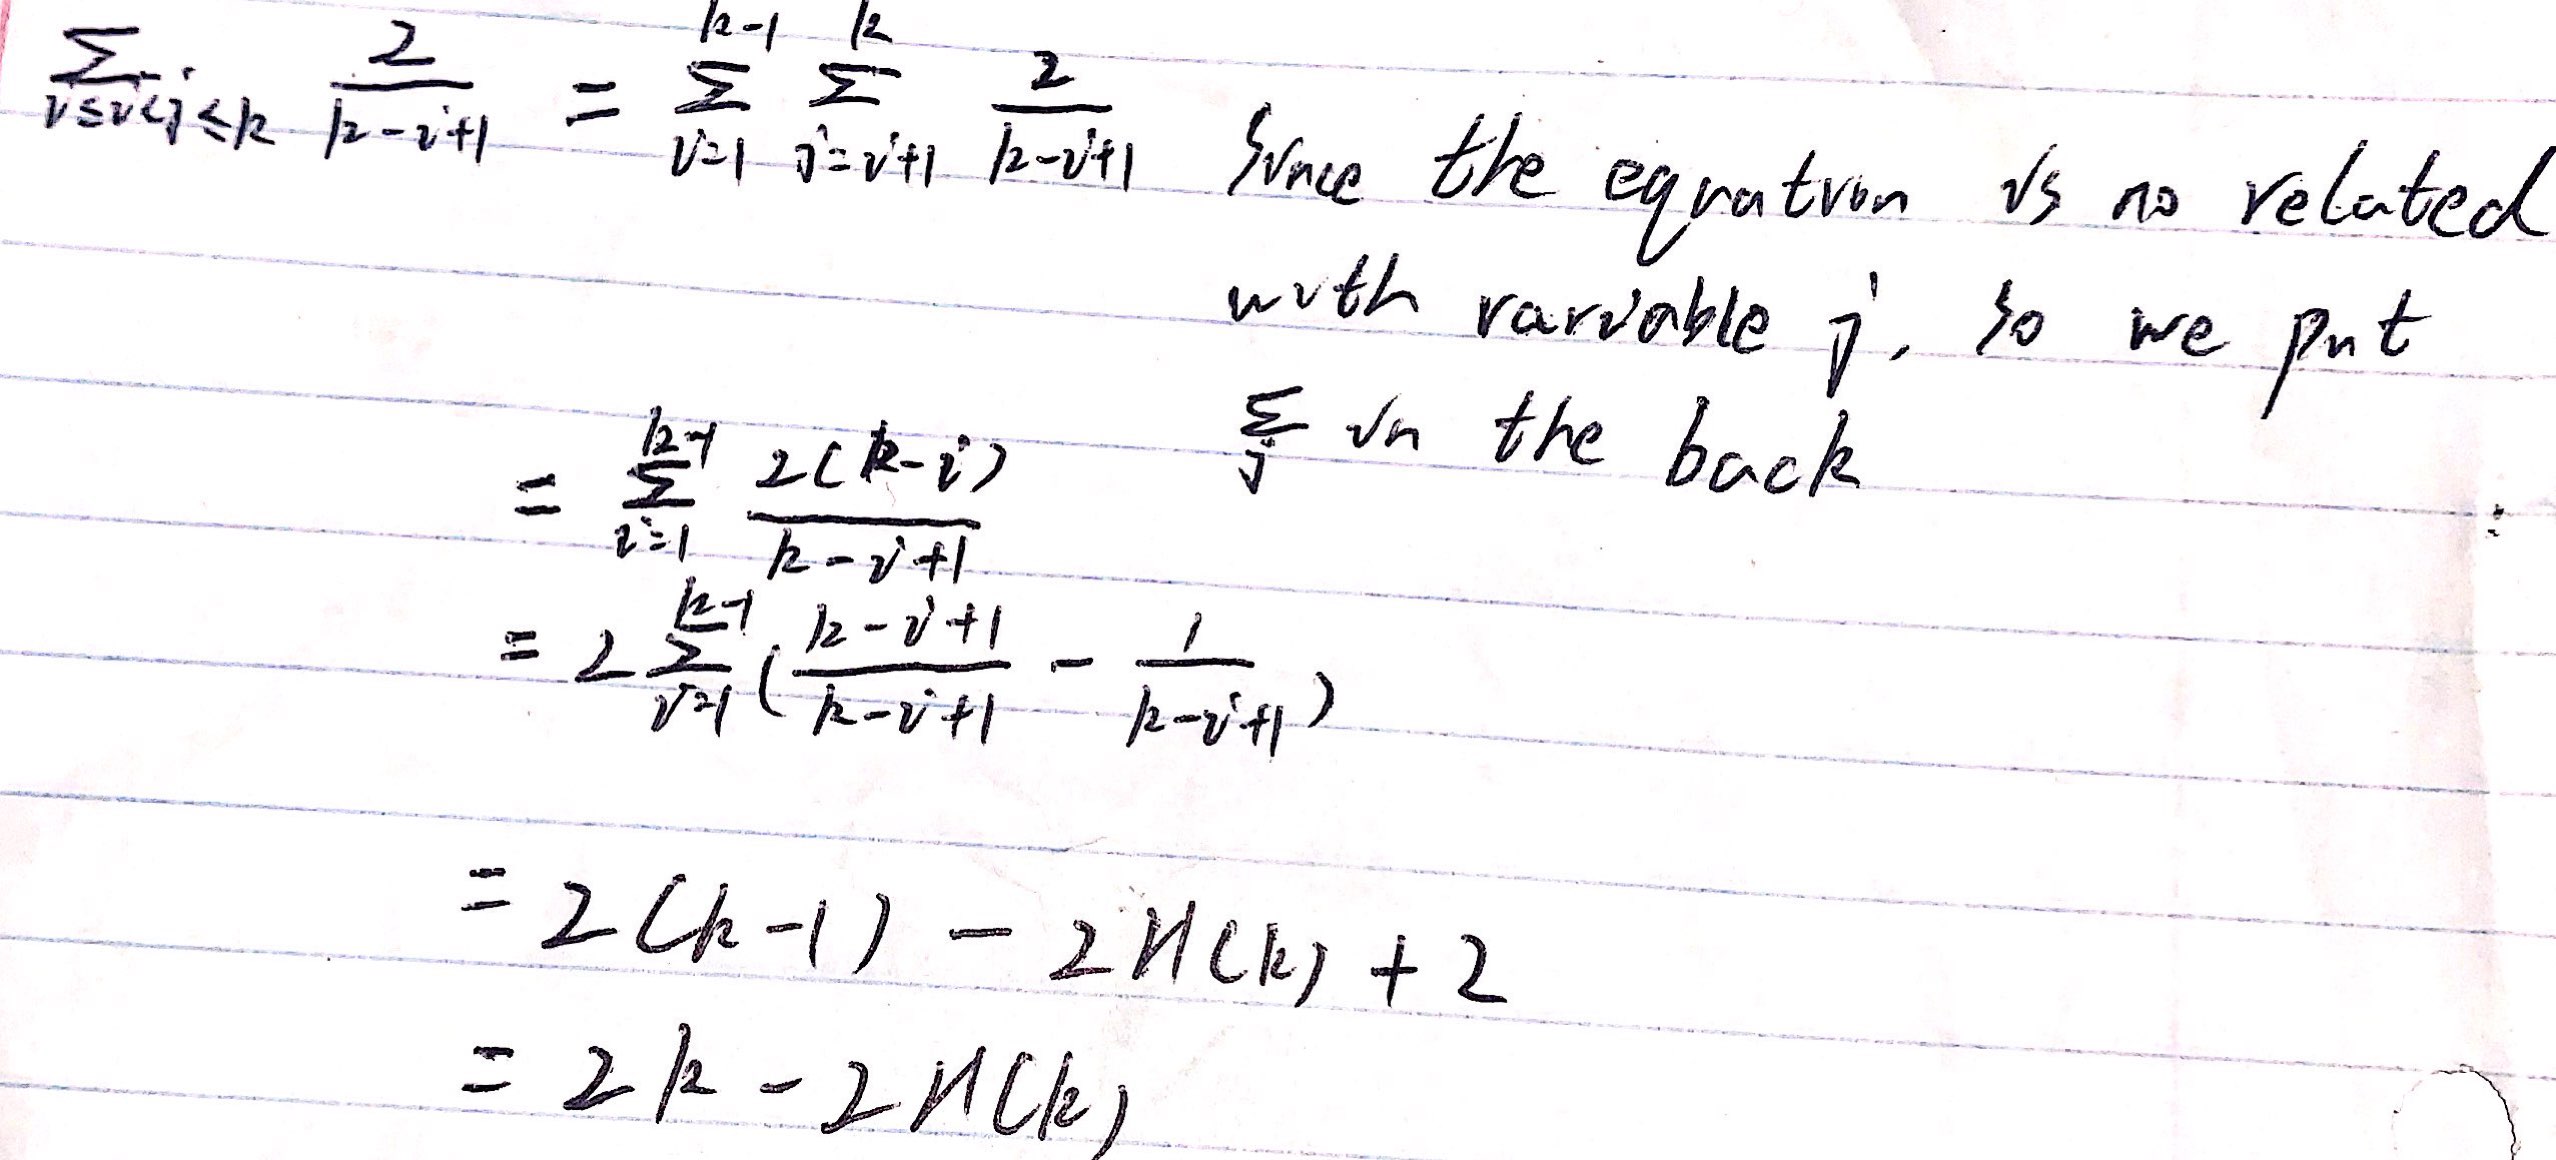 ∑_{1≤i<j≤k} 2/(k-i+1) = ∑_{i=1}^{k-1} ∑_{j=i+1}^{k} 2/(k-i+1) Since the equation is no related
with variable j, so we put
∑_j in the back
= ∑_{i=1}^{k-1} 2(k-i)/(k-i+1)
= 2∑_{i=1}^{k-1} ((k-i+1)/(k-i+1) - 1/(k-i+1))
= 2(k-1) - 2H(k) + 2
= 2k - 2H(k)